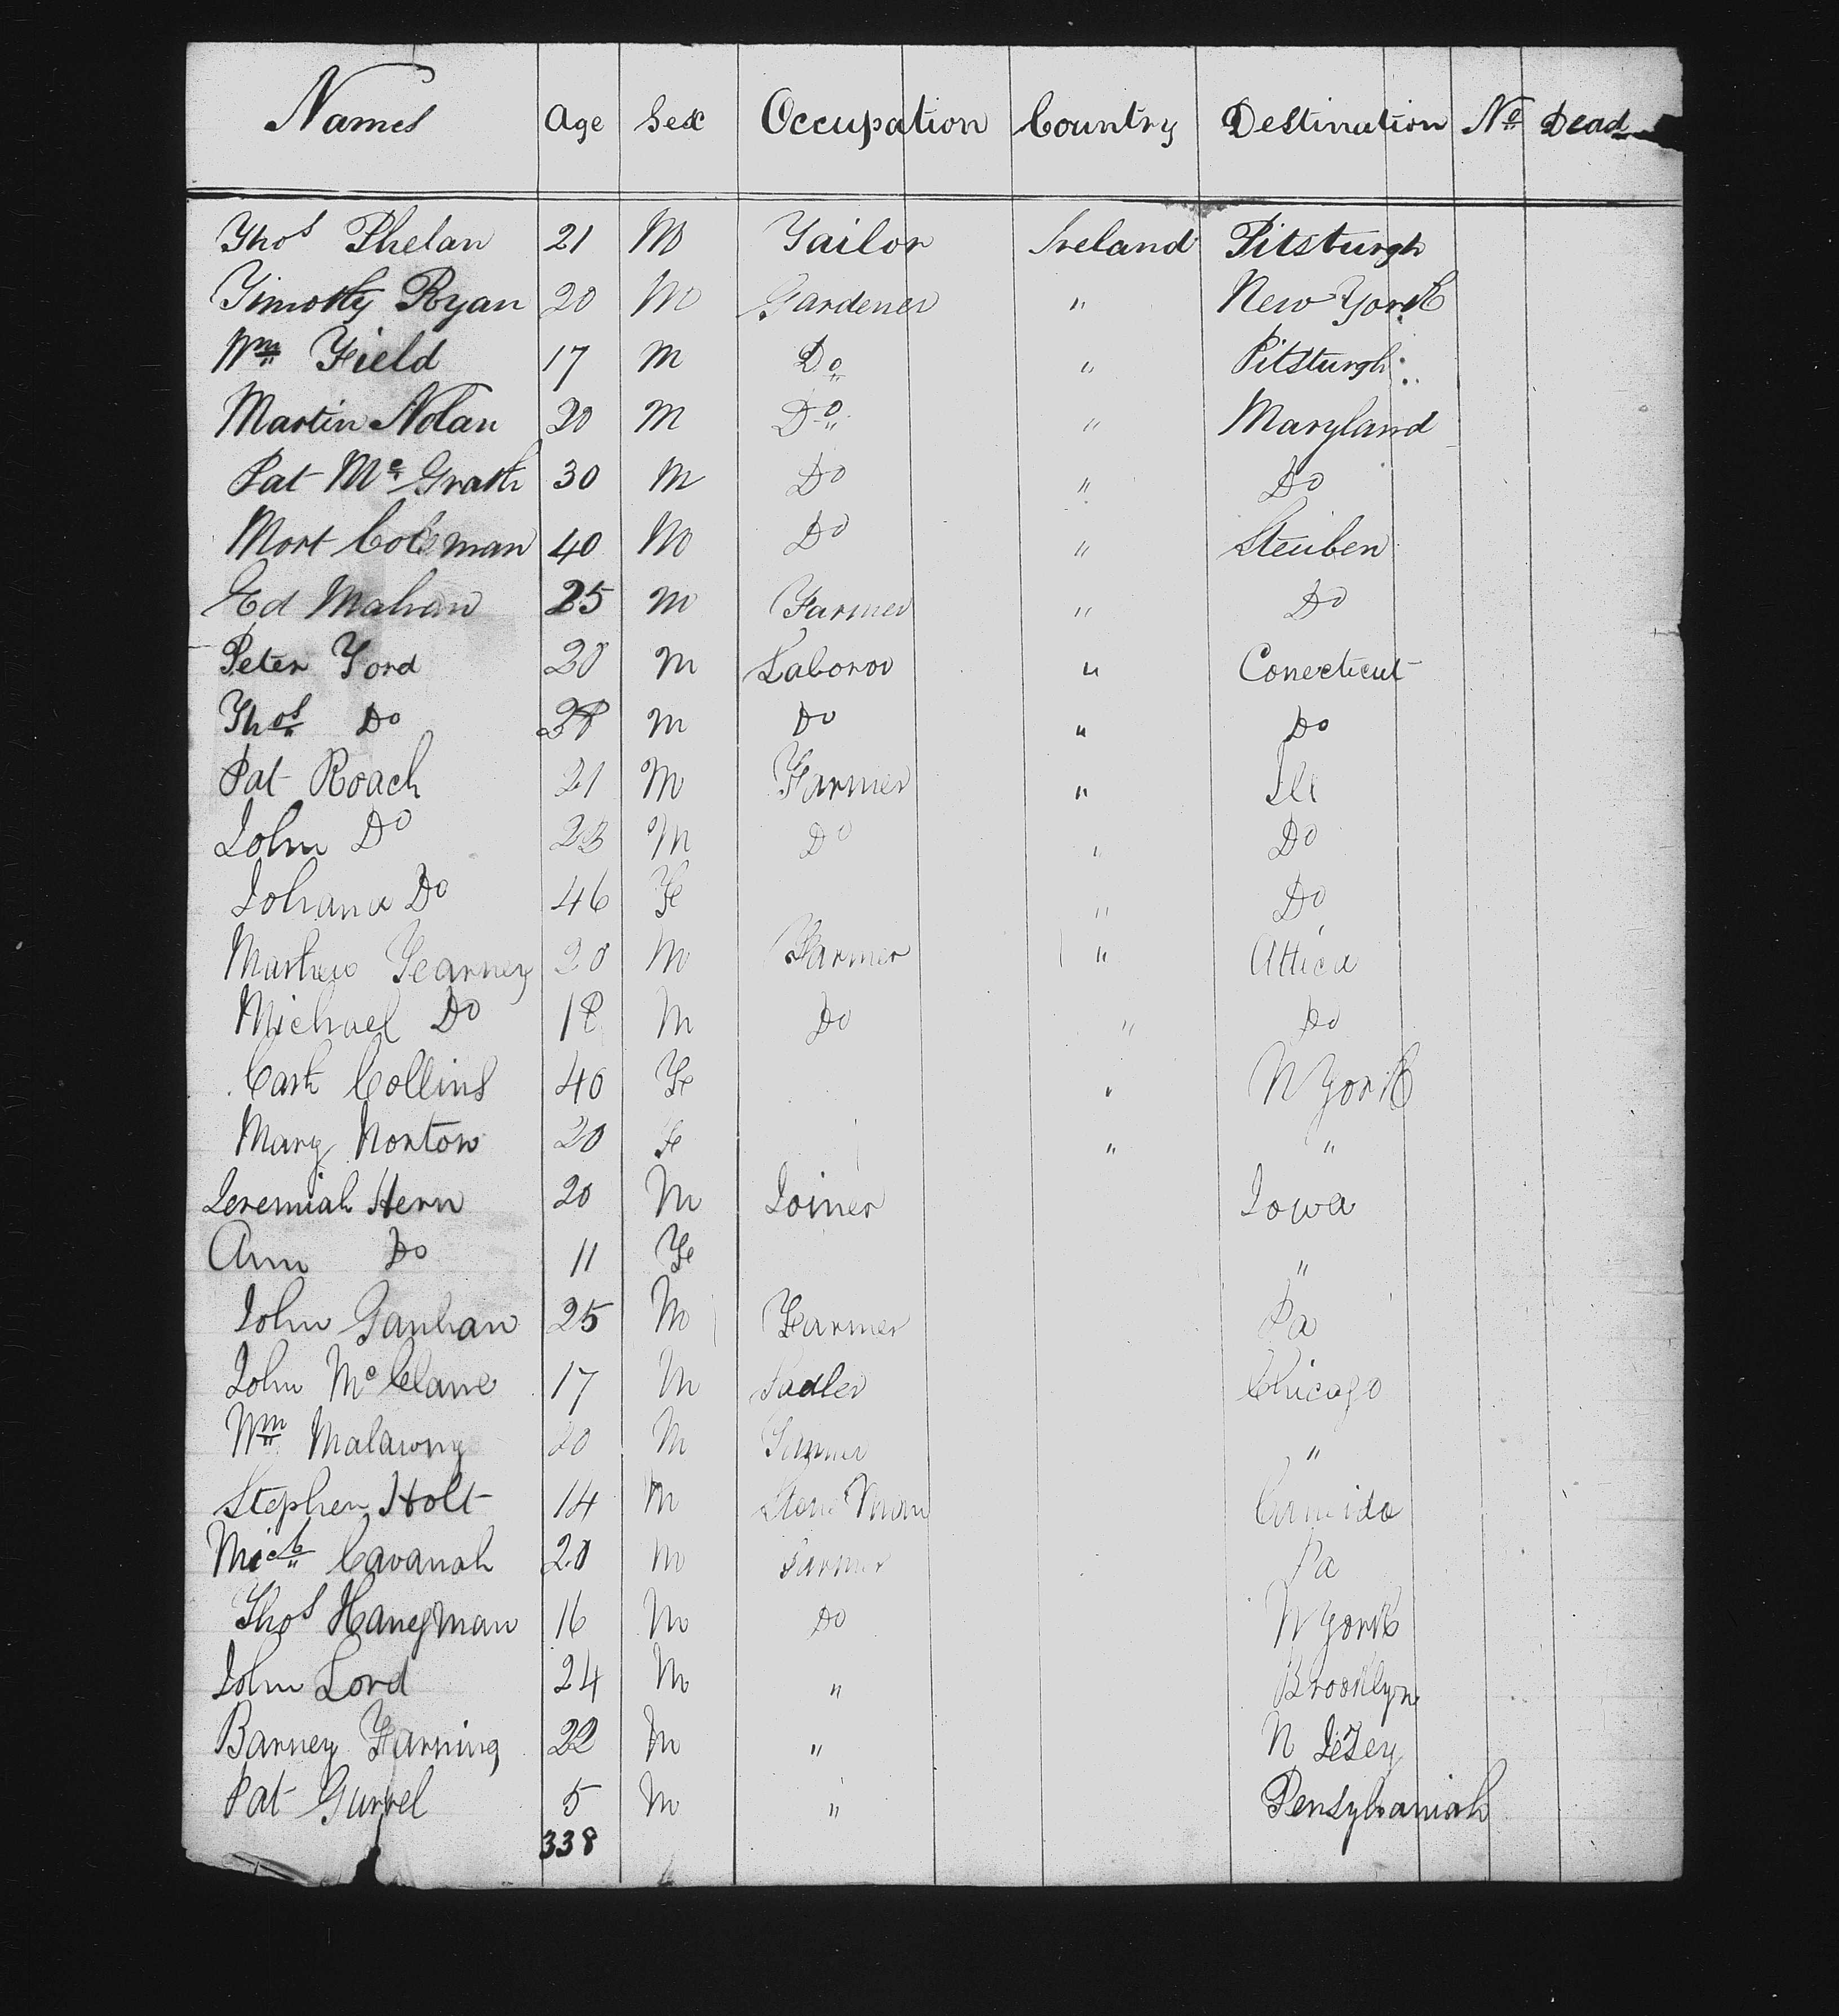 Names Age Sex Occupation Country Destination No Dead
Thos Phelan 21 M Tailor Ireland Pitsburgh
Timothy Ryan 20 M Gardener " New York
Wm Field 17 M Do " Pitsburgh
Martin Nolan 20 M Do " Maryland
Pat McGrath 30 M Do " Do
Mort Coleman 40 M Do " Steuben
Ed Mahan 25 M Farmer " Do
Peter Ford 20 M Laboror " Conecticut
Thos Do M Do " Do
Pat Roach 21 M Farmer " Ill
John Do 23 M Do " Do
Johana Do 46 Fe " Do
Mathew Fearney 20 M Farmer " Attica
Michael Do 18 M Do " Do
Cath Collins 40 Fe " N York
Mary Norton 20 Fe " "
Jeremiah Hern 20 M Joiner Iowa
Ann Do 11 Fe "
John 25 M Farmer Pa
John McClane 17 M Sadler Chicago
Wm 20 M "
Stephen Holt 14 M Stone Man
Mich Cavanah 20 M Farmer Pa
Thos Hanegman 16 M Do N York
John Lord 24 M " Brooklyn
Barney Farning 22 M " N Jezey
Pat Gurrel 5 M " Pensylvaniah
338